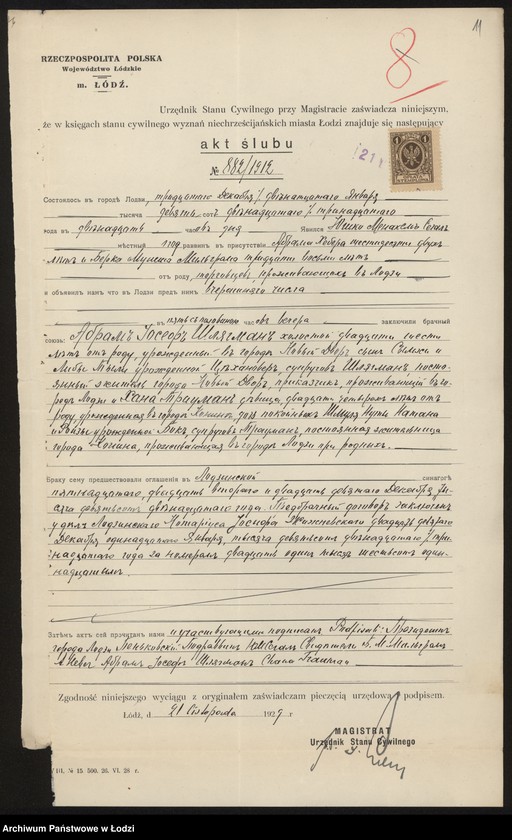 11
8
RZECZPOSPOLITA POLSKA
Województwo Łódzkie
m. ŁÓDŹ.
Urzędnik Stanu Cywilnego przy Magistracie zaświadcza niniejszym,
że w księgach stanu cywilnego wyznań niechrześcijańskich miasta Łodzi znajduje się następujący
akt ślubu
№ 882/1912
Состоялось въ городѣ Лодзи, тридцатого Декабря / двѣнадцатаго Января
тысяча девять сотъ двѣнадцатаго / тринадцатаго
года въ двѣнадцать часовъ дня Явился
мѣстный раввинъ въ присутствіи Абрама шестидесяти двухъ
лѣтъ и Берка Мильграма тридцати восьми лѣтъ
отъ роду, торговцевъ проживающихъ въ Лодзи
и объявилъ намъ что въ Лодзи предъ нимъ вчерашняго числа
въ пять съ половиною часовъ вечера заключили брачный
союзъ: Абрамъ Іосефъ Шлязманъ холостой двадцати шести
лѣтъ отъ роду, урожденный въ городѣ Новый Дворъ сынъ и
урожденной Цѣхановеръ, супруговъ Шлязманъ посто-
янный житель города Новый Дворъ, приказчикъ, проживающій въ го-
родѣ Лодзи и Хана Трауманъ дѣвица, двадцати четырехъ лѣтъ отъ
роду, урожденная въ городѣ Конинѣ, дочь покойныхъ Натана
и урожденной Бокъ, супруговъ Трауманъ, постоянная жительница
города Конина, проживающая въ городѣ Лодзи при родныхъ.
Браку сему предшествовали оглашенія въ Лодзинской синагогѣ
пятнадцатаго, двадцать второго и двадцать девятаго Декабря ты-
сяча девятьсотъ двѣнадцатаго года. Предбрачный договоръ заключенъ
у Лодзинскаго Нотаріуса Іосифа двадцать девятаго
Декабря одинадцатаго Января, тысяча девятьсотъ двѣнадцатаго / три-
надцатаго года за номеромъ двадцать одинъ тысяча шестьсотъ один-
надцатымъ.
Затѣмъ актъ сей прочитанъ нами и участвующими подписанъ Президентъ
города Лодзи Пеньковскій. Свидѣтели Б. М. Мильграмъ
Абрамъ Іосефъ Шлязманъ Chana Trauman
Zgodność niniejszego wyciągu z oryginałem zaświadczam pieczęcią urzędową i podpisem.
Łódź, d 21 listopada 1929 r
MAGISTRAT
Urzędnik Stanu Cywilnego
Dl. № 15 500. 26. VI. 28 r.
Archiwum Państwowe w Łodzi